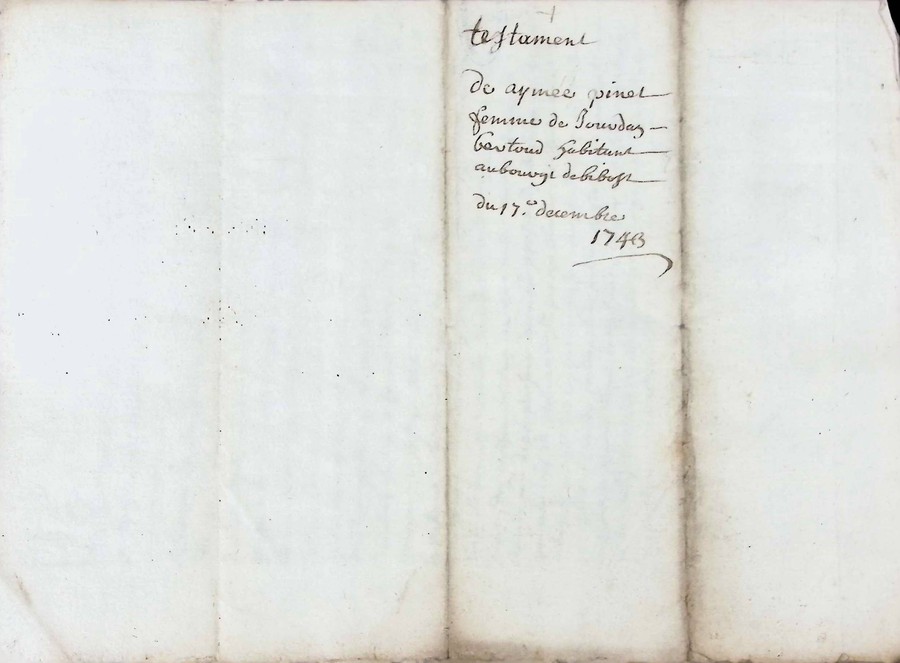 testament
de aymée pinet
femme de Jourdan
bertoud habitant
au bourg de bibost
du 17.e decembre
1743